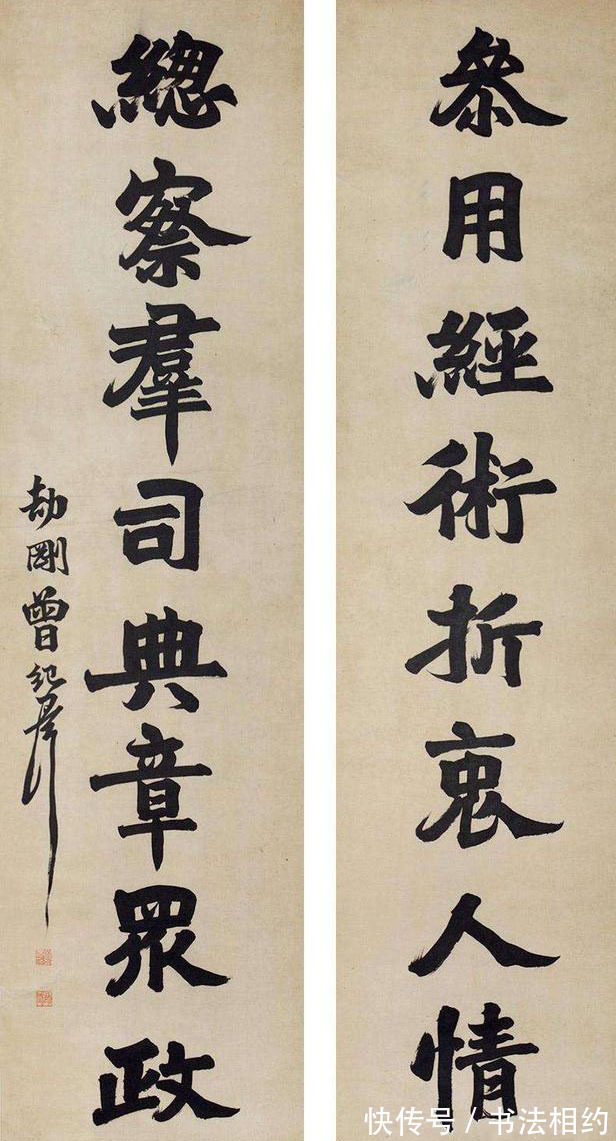 叅用經術折衷人情
總察羣司典章眾政
劼剛曾紀澤
快传号 / 书法相约